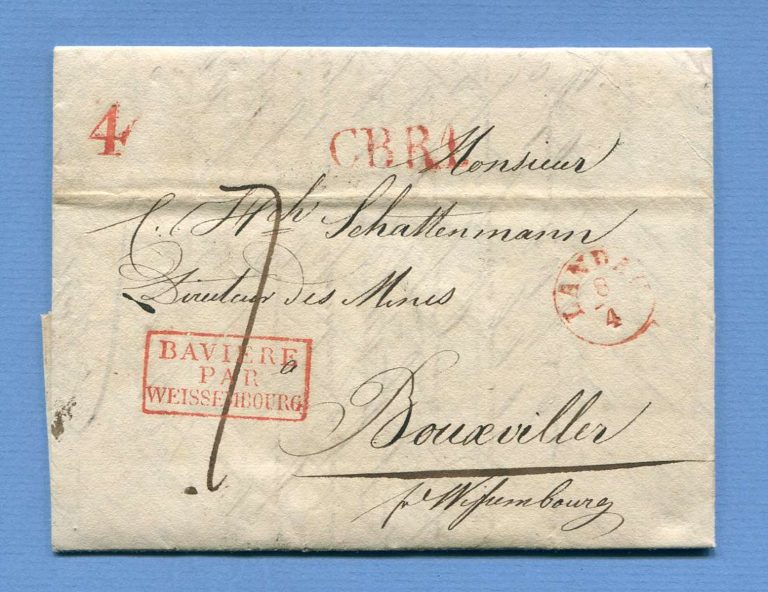 4
CBR4.
Monsieur
C. H. Schattenmann
Directeur des Mines
LANDAU
8
4
7
BAVIERE
PAR
WEISSEMBOURG
Bouxviller
pr Wissembourg